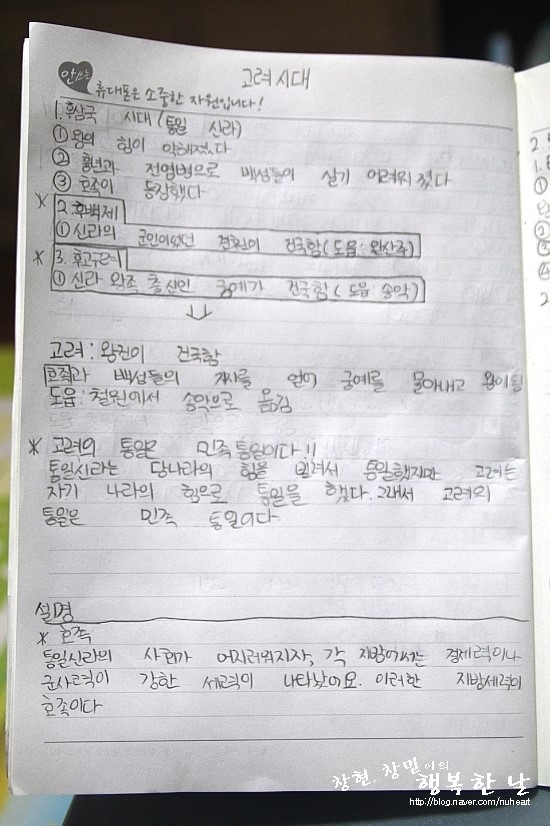 고려시대
안쓰는
휴대폰은 소중한 자원입니다!
1. 후삼국 시대 (통일 신라)
① 왕의 힘이 약해졌다
② 흉년과 전염병으로 백성들이 살기 어려워졌다
③ 호족이 등장했다
* 2. 후백제
① 신라의 군인이었던 견훤이 건국함 (도읍: 완산주)
* 3. 후고구려
① 신라 왕족 출신인 궁예가 건국함 (도읍 송악)
↓
고려 : 왕건이 건국함
호족과 백성들의 지지를 얻어 궁예를 몰아내고 왕이 됨
도읍 : 철원에서 송악으로 옮김
* 고려의 통일은 민족통일이다!!
통일신라는 당나라의 힘을 빌려서 통일했지만 고려는
자기 나라의 힘으로 통일을 했다. 그래서 고려의
통일은 민족 통일이다
설명
* 호족
통일신라의 사회가 어지러워지자, 각 지방에서는 경제력이나
군사력이 강한 세력이 나타났어요. 이러한 지방세력이
호족이다
창현, 창민이의
행복한 날
http://blog.naver.com/nuheart